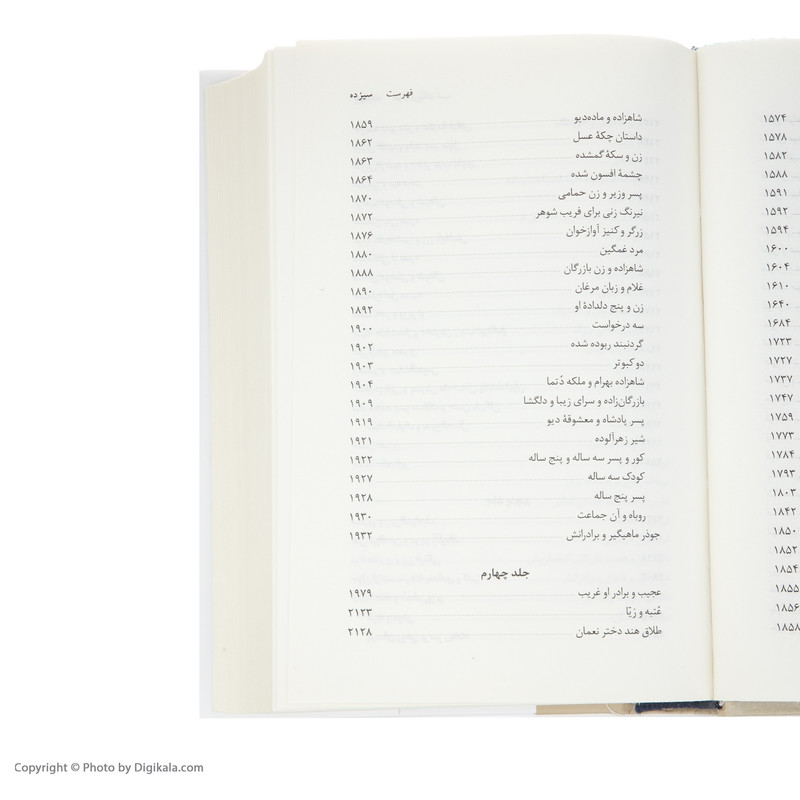 فهرست سیزده
شاهزاده و ماده‌دیو ۱۸۵۹
داستان چکهٔ عسل ۱۸۶۲
زن و سکهٔ گمشده ۱۸۶۳
چشمهٔ افسون شده ۱۸۶۴
پسر وزیر و زن حمامی ۱۸۷۰
نیرنگ زنی برای فریب شوهر ۱۸۷۲
زرگر و کنیز آوازخوان ۱۸۷۶
مرد غمگین ۱۸۸۰
شاهزاده و زن بازرگان ۱۸۸۸
غلام و زبان مرغان ۱۸۹۰
زن و پنج دلدادهٔ او ۱۸۹۲
سه درخواست ۱۹۰۰
گردنبند ربوده شده ۱۹۰۲
دو کبوتر ۱۹۰۳
شاهزاده بهرام و ملکه دُتما ۱۹۰۴
بازرگان‌زاده و سرای زیبا و دلگشا ۱۹۰۹
پسر پادشاه و معشوقهٔ دیو ۱۹۱۹
شیر زهرآلوده ۱۹۲۱
کور و پسر سه ساله و پنج ساله ۱۹۲۲
کودک سه ساله ۱۹۲۷
پسر پنج ساله ۱۹۲۸
روباه و آن جماعت ۱۹۳۰
جوذر ماهیگیر و برادرانش ۱۹۳۲
جلد چهارم
عجیب و برادر او غریب ۱۹۷۹
عُتبه و ریّا ۲۱۲۳
طلاق هند دختر نعمان ۲۱۲۸
۱۵۷۴
۱۵۷۸
۱۵۸۲
۱۵۸۸
۱۵۹۱
۱۵۹۲
۱۵۹۴
۱۶۰۰
۱۶۰۴
۱۶۱۰
۱۶۴۰
۱۶۸۴
۱۷۲۳
۱۷۲۷
۱۷۳۷
۱۷۴۷
۱۷۵۹
۱۷۷۳
۱۷۸۴
۱۷۹۳
۱۸۰۳
۱۸۴۲
۱۸۵۰
۱۸۵۲
۱۸۵۴
۱۸۵۵
۱۸۵۶
۱۸۵۸
Copyright © Photo by Digikala.com